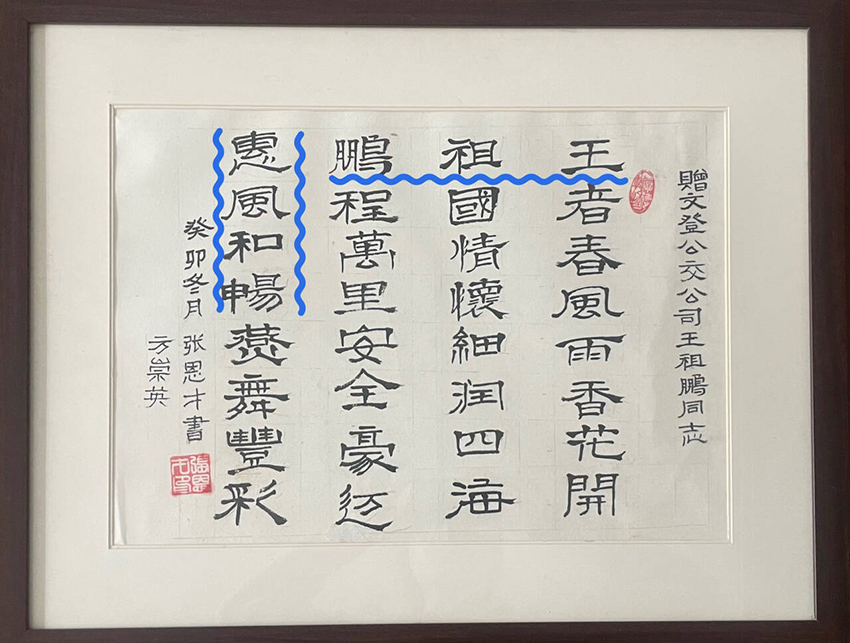 赠文登公交公司王祖鹏同志
王者春風雨香花開
祖國情懷細润四海
鵬程萬里安全豪迈
惠風和暢燕舞豐彩
癸卯冬月 张恩才書
方崇英